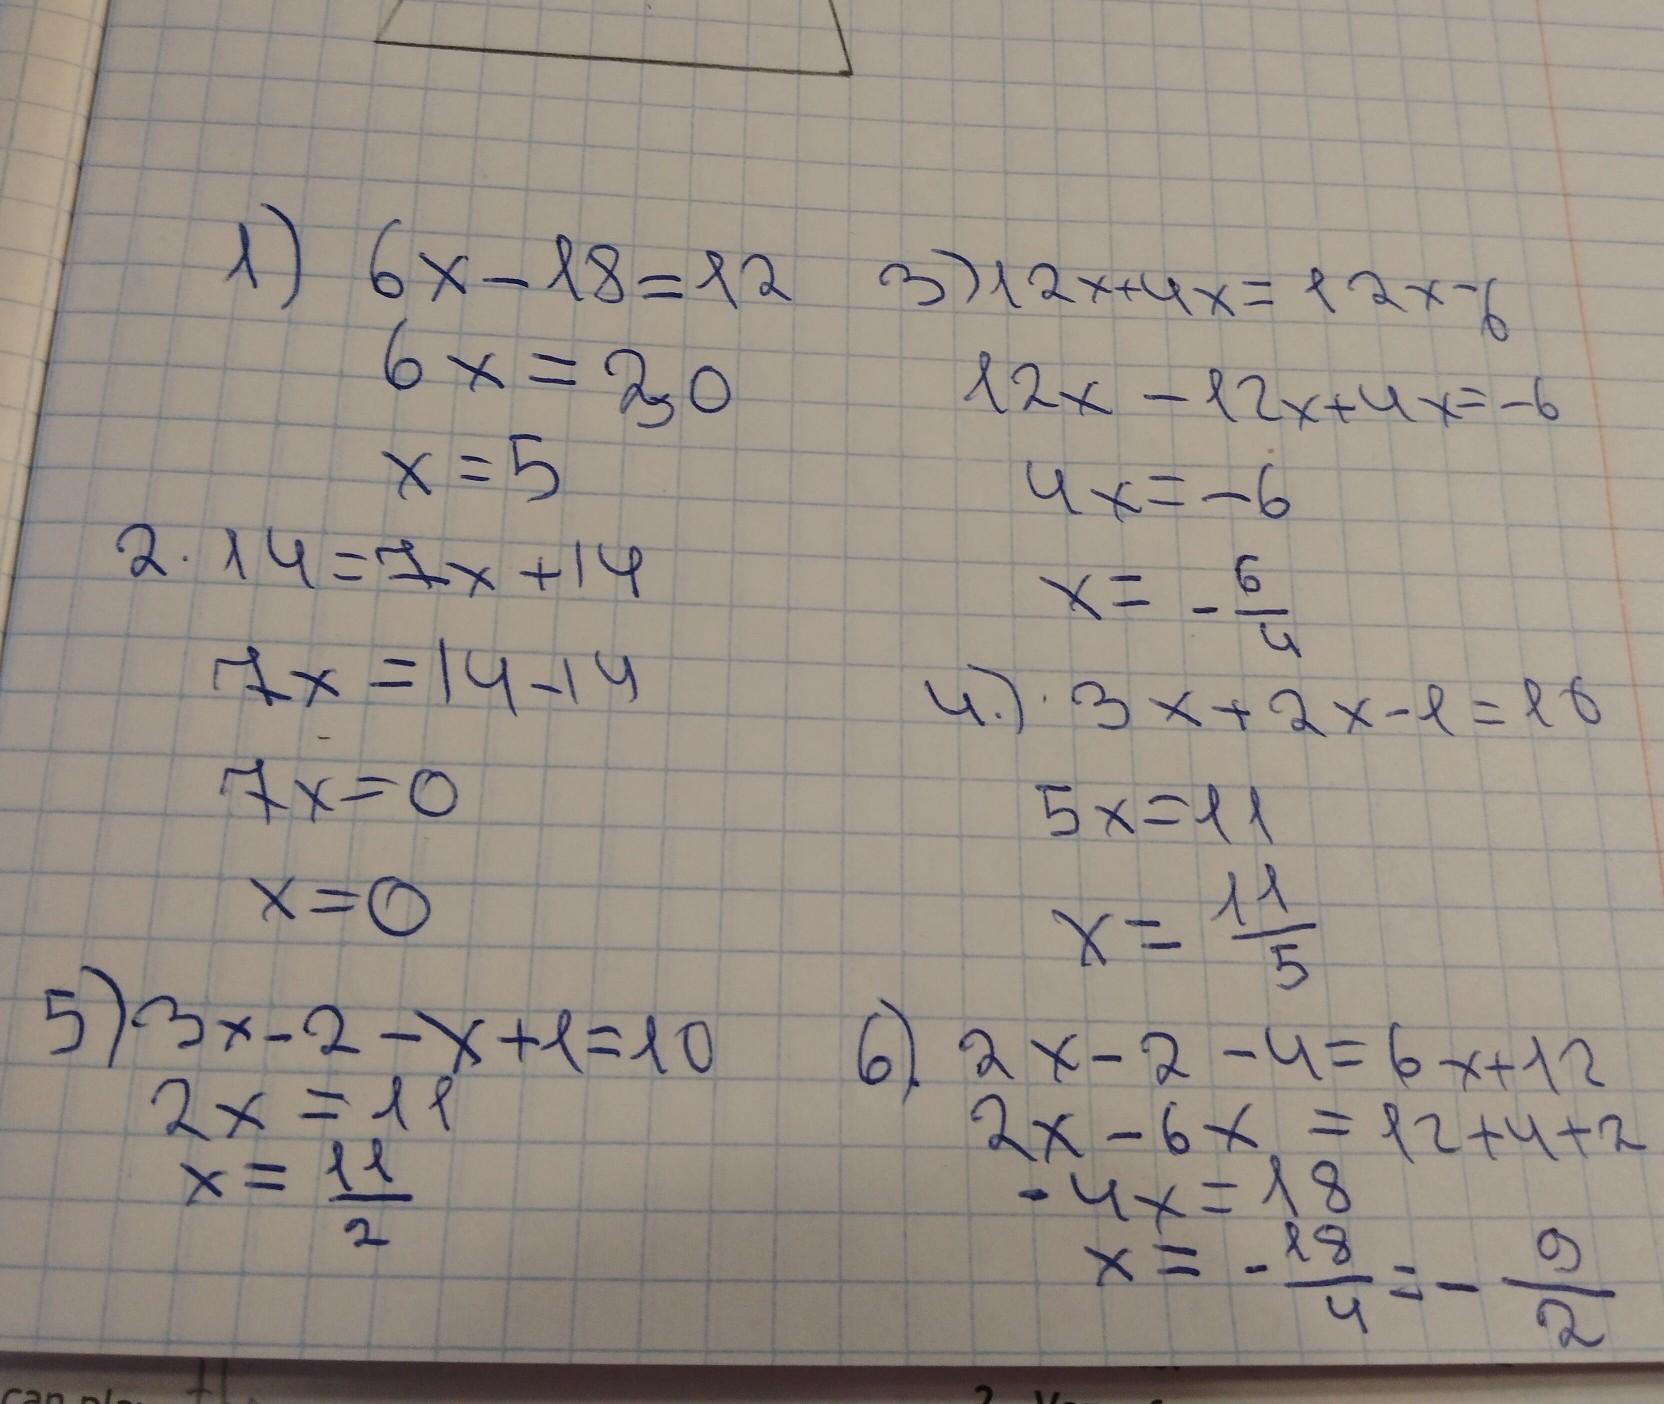 1) 6x-18=12
6x=30
x=5
2. 14=7x+14
7x=14-14
7x=0
x=0
3) 12x+4x=12x-6
12x-12x+4x=-6
4x=-6
x=-6/4
4.) 3x+2x-1=10
5x=11
x=11/5
5) 3x-2-x+1=10
2x=11
x=11/2
6) 2x-2-4=6x+12
2x-6x=12+4+2
-4x=18
x=-18/4=-9/2
can
2.